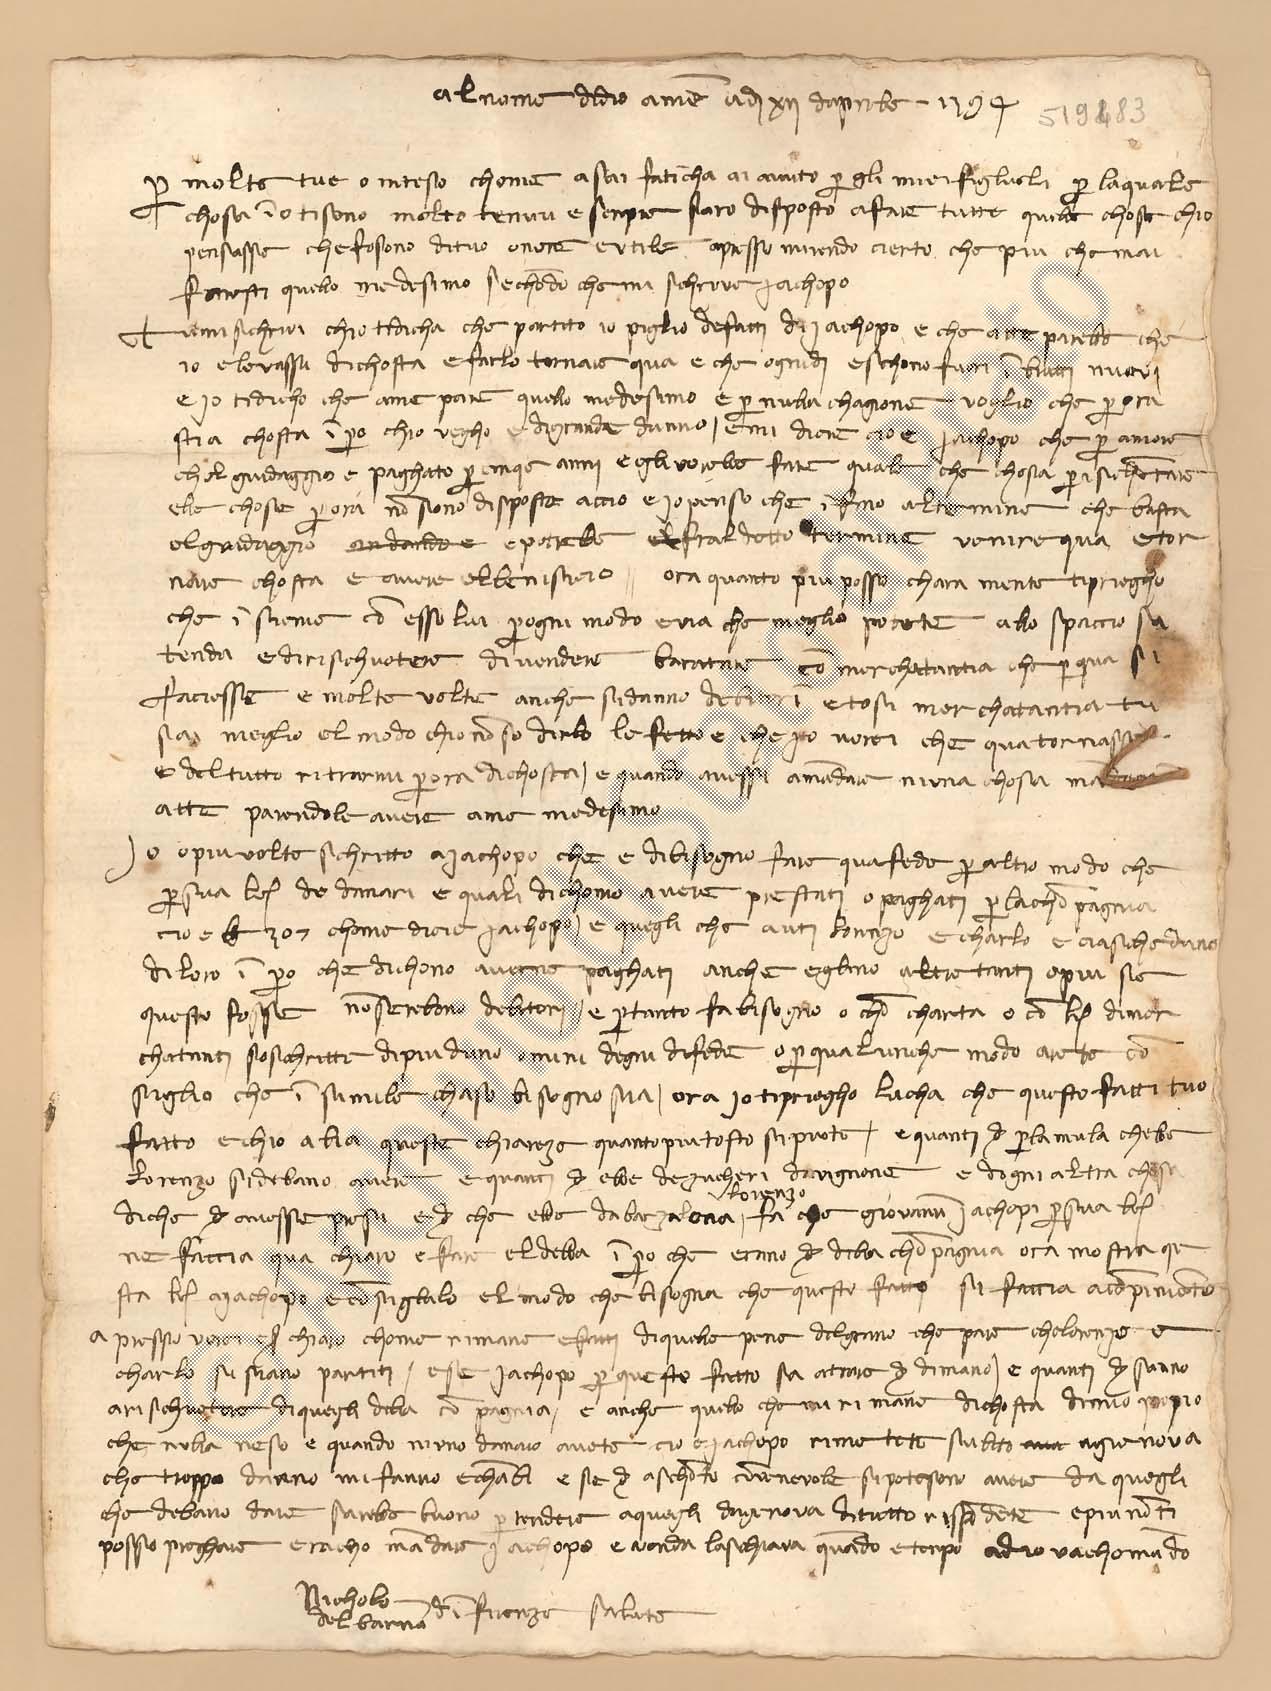 al nome di dio amē adj xij daprile 1394
519483
p molte tue o inteso chome asai faticha ai auuto p gli miei figliuoli p laquale
chosa io ti sono molto tenuto e senpre saro disposto a fare tutte quelle chose chio
pensasse che fosono di tuo onore e utile apresso rendo cierto che piu che mai
faresti quello medesimo sechōdo che mi schrive jachopo
Tu mi schrivi chio ti dicha che partito io piglio de fatti di jachopo e che atte parebbe che
io el levassi di chosta e farlo tornare qua e che ognidj eschono fuori ī brutti nuovi
e jo ti dicho che a me pare quello medesimo e p nulla chagione voglio che p ora
stia chosta ī po chio vegho e di grande danno / e mi dicie cioe jachopo che p amore
chel guidaggio e paghato p cinque anni egli vorebbe fare qualche chosa p risultare
elle chose p ora nō sono disposte accio e jo penso che ī fino al termine che basta
el guidaggio e potrebbe el fral detto termine venire qua e tor
nare chosta e avere el benistiero // ora quanto piu posso chara mente ti priegho
che ī sieme cō esso lui p ogni modo e via che meglio potete allo spaccio sa
tenda e di rischuotere di vendere baratare cō merchatantia che p qua si
faciesse e molte volte anche si danno debitori e tosi merchatantia tu
sai meglio el modo chio nō so dirlo le fetto e che io vorei che qua tornasse
e del tutto ritrarmi p ora di chosta / e quando avessi a mādare niuna chosa
atte parendole avere a me medesimo
Jo o piu volte schritto a jachopo che e di bisogno fare qua fede p altro modo che
p sua lr̄a de danari e quali dichono avere prestati o paghati p la chōpagnia
cioe 307 chome dicie jachopo / e quegli che auti lorenzo e charlo e ciaschiduno
di loro ī po che dichono averne paghati anche eglino altretanti o piu se
questo fosse nō serebono debitori / e p tanto fa bisogno o chō charta o cō lr̄a di mer
chatanti soschritta di piu duno omini degni di fede o p qualunche modo avete cō
siglio che ī simile chaso bisogno sia / ora jo ti priegho lucha che questo fatti tuo
fatto e chio abia queste chiareze quanto piu tosto si puote / e quanti p la mula chebe
Lorenzo si debano avere e quanti ebbe de zucheri davignone e dogni altra chosa
di che avesse presi e che ebe da barzalona lorenzo / fa che giovanni jachopi p sua lr̄a
ne faccia qua chiaro e fare el debba ī po che erano della chōpagnia ora mostra que
sta lr̄a a jachopo e cōsiglialo el modo che bisogna che questo fatto si faccia a cōpimento
apresso vorei chiaro chome rimane e fatti di quelle pene del grano che pare che lorenzo e
charlo si siano partiti / e se jachopo p questo fatto sa a trare di mano / e quanti sanno
a rischuotere di quegli della cōpagnia / e anche quello che mi rimane di chosta di mio propio
che nulla ne so e quando niuno danaio avete cioe jachopo rimetete subito a gienova
che troppo danno mi fanno e chābi e se a schōto cōvenevole si potesono avere da quegli
che debano dare sarebe buono p rendere a quegli da gienova di tutto rispōdete e piu nō ti
posso preghare e racho mādare jachopo e vonda la schiava quādo e tenpo adio vachomādo
Nicholo
del barna dī firenze salute